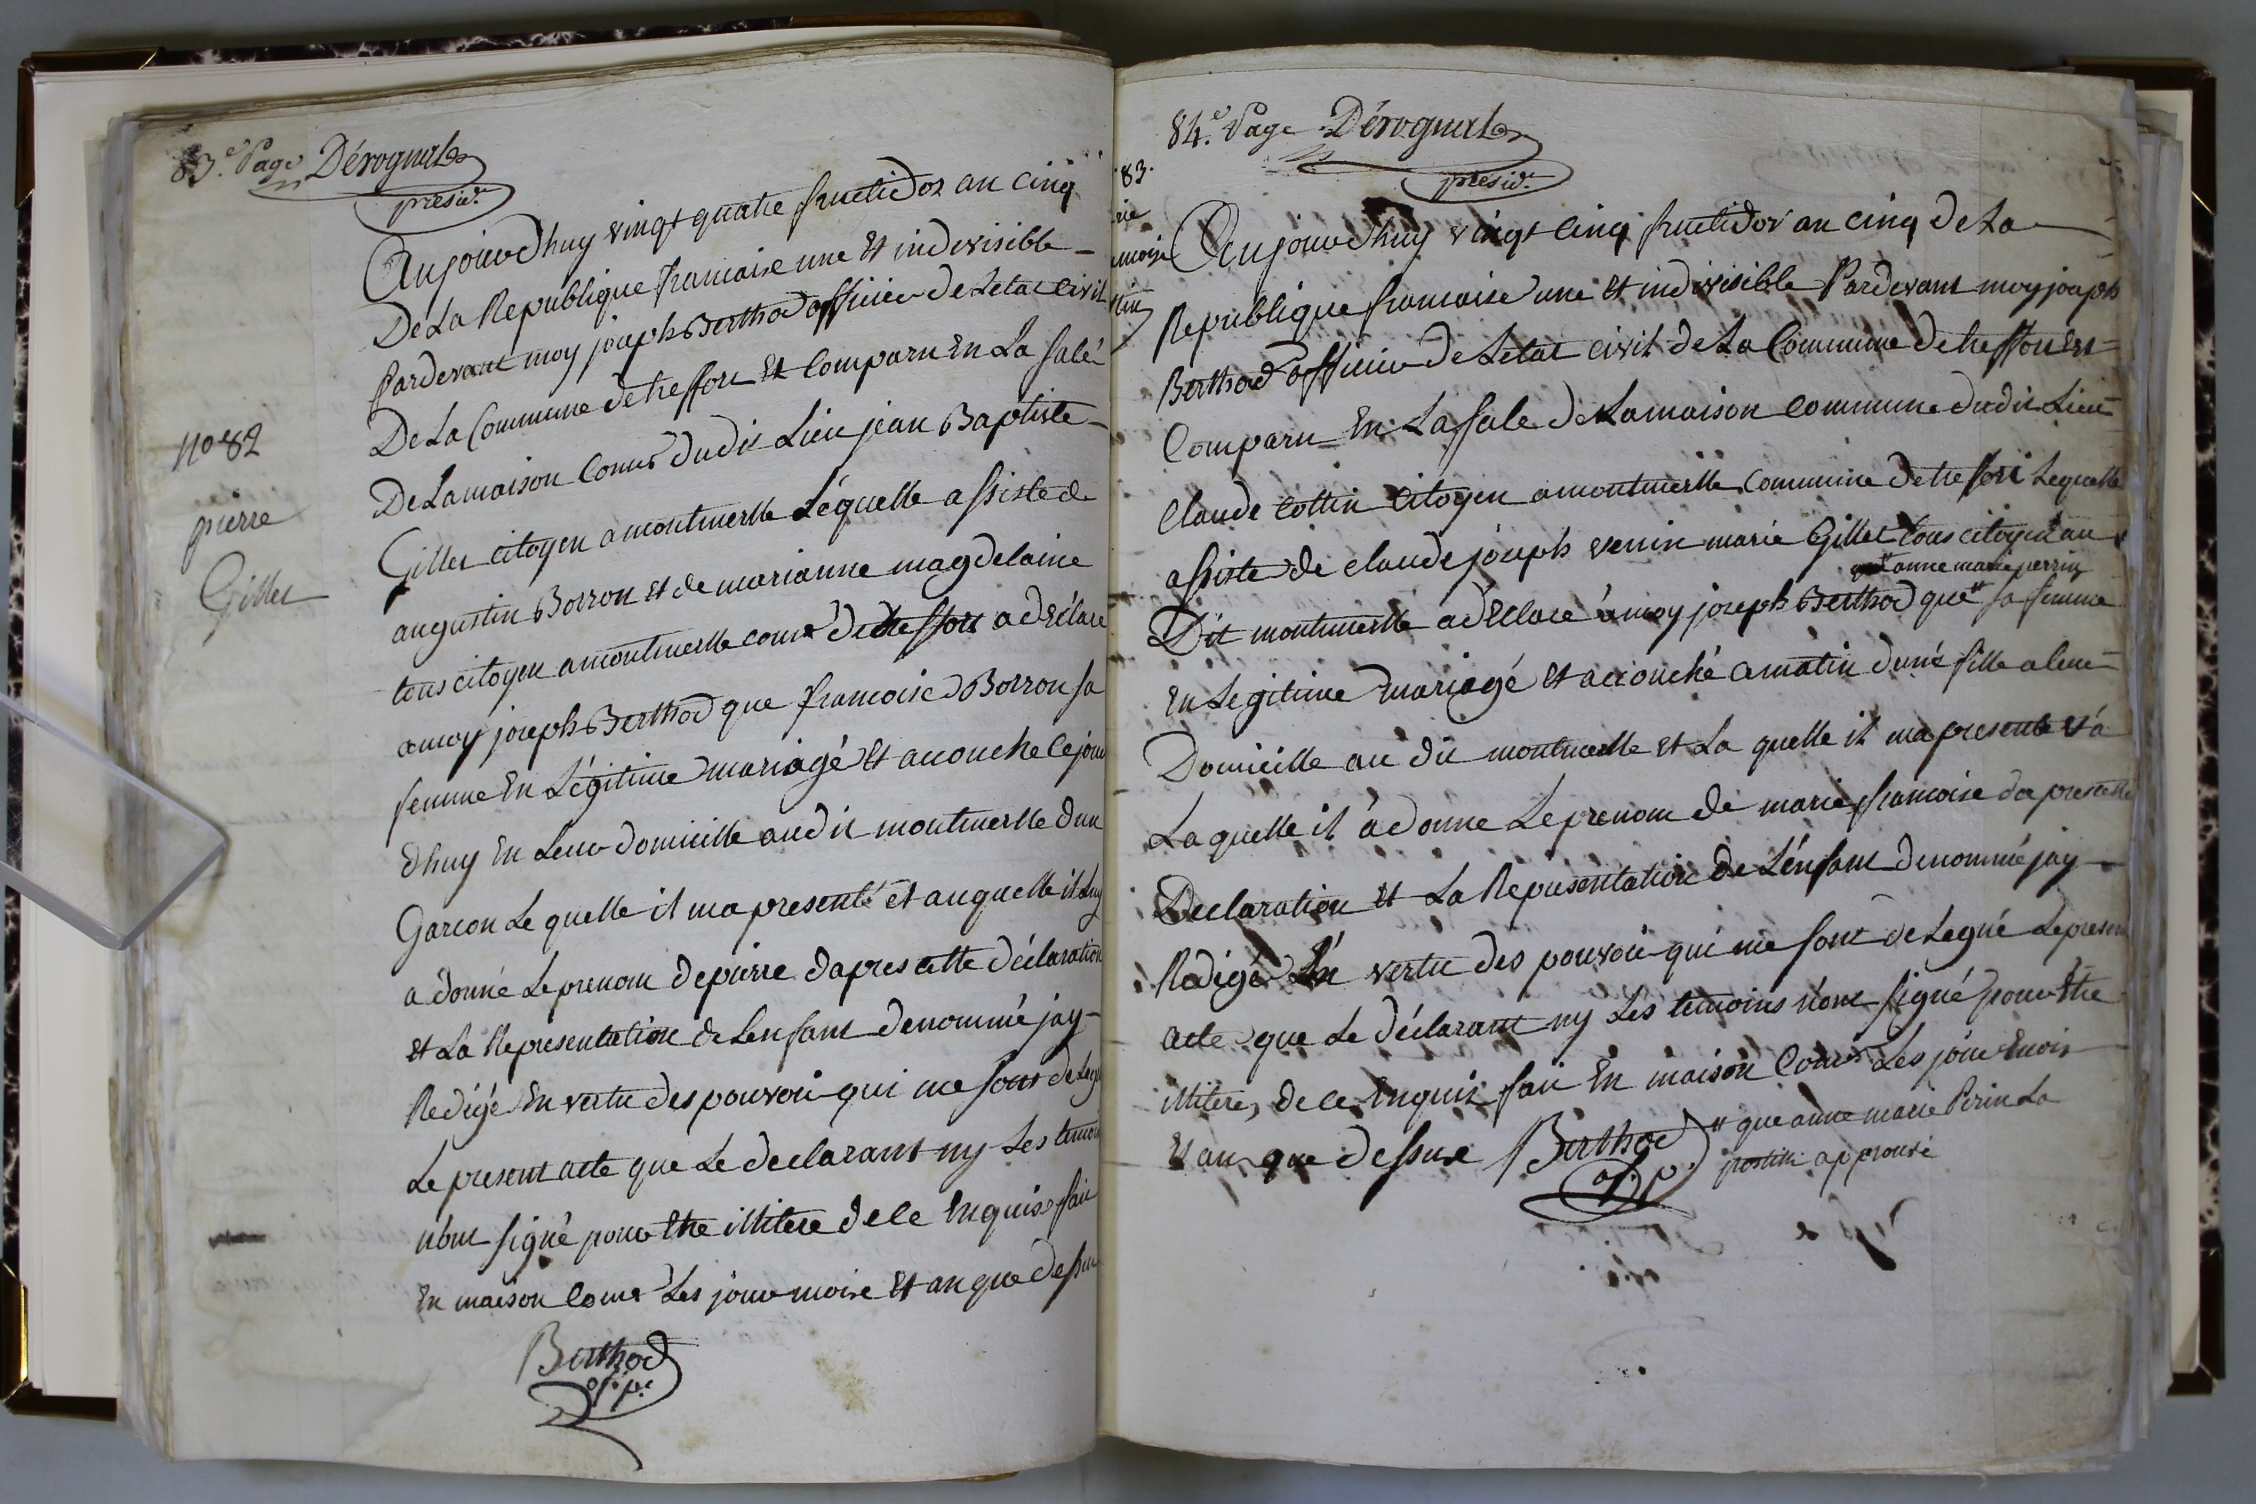 83.e Page Dérognat
présid.t
No 82
pierre
Gillet
Aujourdhuy vingt quatre fructidor an cinq
De La Republique francaise une et indivisible
Pardevant moy joseph Berthod officier de Letat civil
De La Commune de treffort Et Comparu En La sale
De Lamaison Come dudit Lieu jean Baptiste
Gillet citoyen a montmerlle Léquelle assiste de
augustin Borron Et de marianne magdelaine
tous citoyen a montmerlle come de treffort a déclare
amoy joseph Berthod que francoise Borron sa
femme En Légitime mariagé Et acouche ce jour
dhuy En Leur domicille audit montmerlle dun
Garcon Le quelle il ma presenté et auquelle il luy
a donné Le prenom de pierre dapres cette déclaration
et La Représentation de Lenfant denommé jay
Redigé En vertu des pouvoir qui me sont delegué
Le present acte que Lé declarant ny Les temoin
nont signé pour Etre illitere de ce Enquis fait
En maison Come Les jour moise Et an que dessus
Berthod
off. p.
84.e Page Dérognat
présid.t
83.
Aujourdhuy vingt cinq fructidor an cinq de La
Republique francaise une Et indivisible Pardevant moy joseph
Berthod officier de Letat civil de La Commune de treffort Est
Comparu En La sale de Lamaison Commune dudit Lieu
Claude Cottin Citoyen a montmerlle Commune de treffort Lequelle
assiste de claude joseph venin marie Gillet tous citoyen au
anne marie perrin
Dit montmerlle a déclaré amoy joseph Berthod que # sa femme
En Legitime mariagé Et accouché ce matin duné fille a leur
Domicille au dit montmerlle et La quelle il ma presenté et a
La quelle il a donne Le prenom de marie francoise da pres cette
Declaration Et La Representation de Lénfant denommé jay
Redigé En vertu des pouvoir qui me sont délegué Le present
acte que Le déclarant ny Les temoins nont signé pour Etre
illitere, de ce Enquis fait En maison Come Les jour Mois
Et an que dessuse Berthod
of. p.
# que anne marie Perin La
postille approuvé